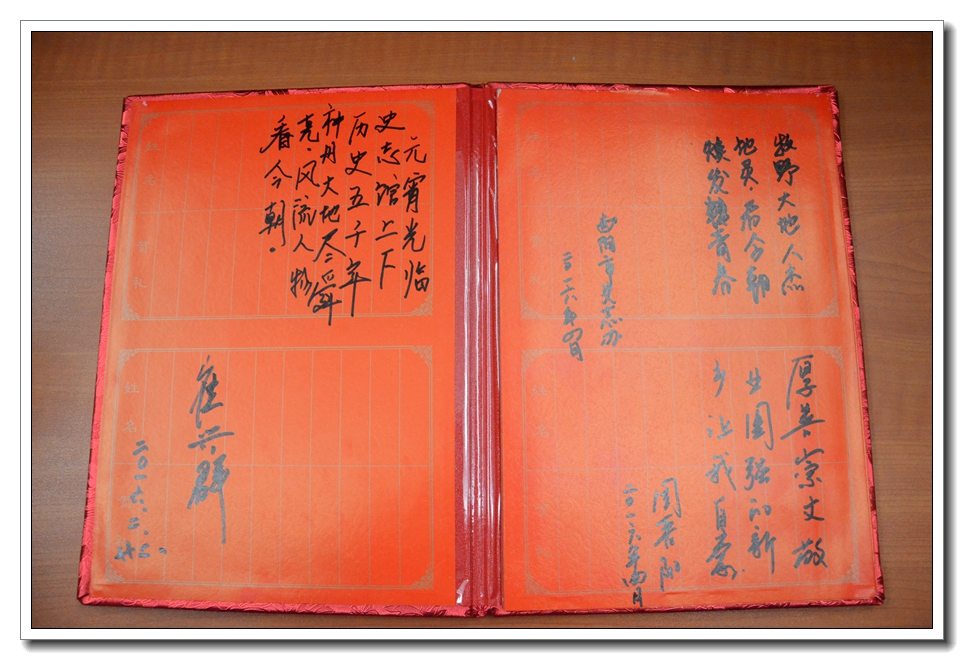 元宵光临
史志馆上下
历史五千年
神丹大地尽舜
尧·风流人物
看今朝。
崔兴
二〇一六.二.
牧野大地人杰
地灵·看今朝
焕发青春
南阳市史志办
二〇一六年四月
厚英崇文敬
业图强的新
乡让我自豪
周
二〇一六年四月
姓名
姓名